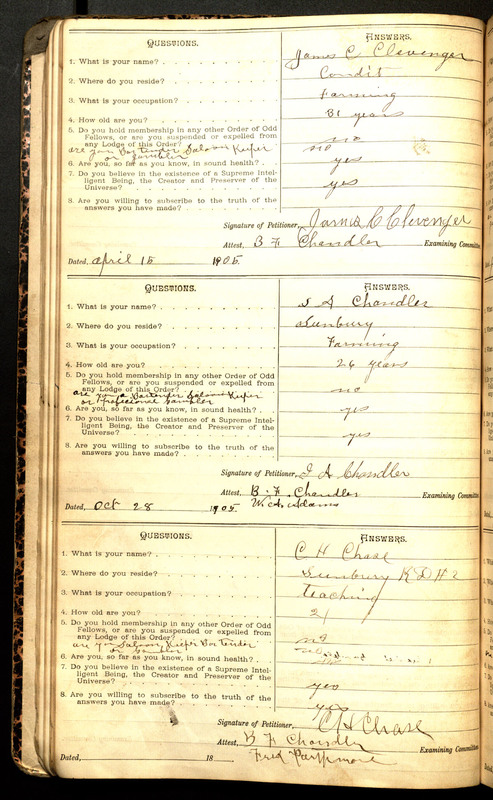 QUESTIONS. ANSWERS.
1. What is your name? James C Clevenger
2. Where do you reside? Condit
3. What is your occupation? Farming
4. How old are you? 31 years
5. Do you hold membership in any other Order of Odd
Fellows, or are you suspended or expelled from
any Lodge of this Order? no
are you Bartender Saloon Keeper no
or gambler
6. Are you, so far as you know, in sound health? yes
7. Do you believe in the existence of a Supreme Intel-
ligent Being, the Creator and Preserver of the
Universe? yes
8. Are you willing to subscribe to the truth of the
answers you have made?
Signature of Petitioner, James C Clevenger
Attest, B F Chandler Examining Committee
Dated, April 15 1905.
QUESTIONS. ANSWERS.
1. What is your name? Chandler
2. Where do you reside? Sunbury
3. What is your occupation? Farming
4. How old are you? 26 years
5. Do you hold membership in any other Order of Odd
Fellows, or are you suspended or expelled from
any Lodge of this Order? no
are you a Bartender Saloon Keeper
or Professional Gambler
6. Are you, so far as you know, in sound health? yes
7. Do you believe in the existence of a Supreme Intel-
ligent Being, the Creator and Preserver of the
Universe? yes
8. Are you willing to subscribe to the truth of the
answers you have made?
Signature of Petitioner, Chandler
Attest, B. F. Chandler Examining Committee
W. A. Adams
Dated, Oct 28 1905.
QUESTIONS. ANSWERS.
1. What is your name? C H Chase
2. Where do you reside? Sunbury R D # 2
3. What is your occupation? Teaching
4. How old are you? 21
5. Do you hold membership in any other Order of Odd
Fellows, or are you suspended or expelled from
any Lodge of this Order? no
are you Saloon Keeper Bartender
or Gambler
6. Are you, so far as you know, in sound health?
7. Do you believe in the existence of a Supreme Intel-
ligent Being, the Creator and Preserver of the
Universe? yes
8. Are you willing to subscribe to the truth of the
answers you have made? yes
Signature of Petitioner, C H Chase
Attest, B F Chandler Examining Committee
Fred
Dated, 18